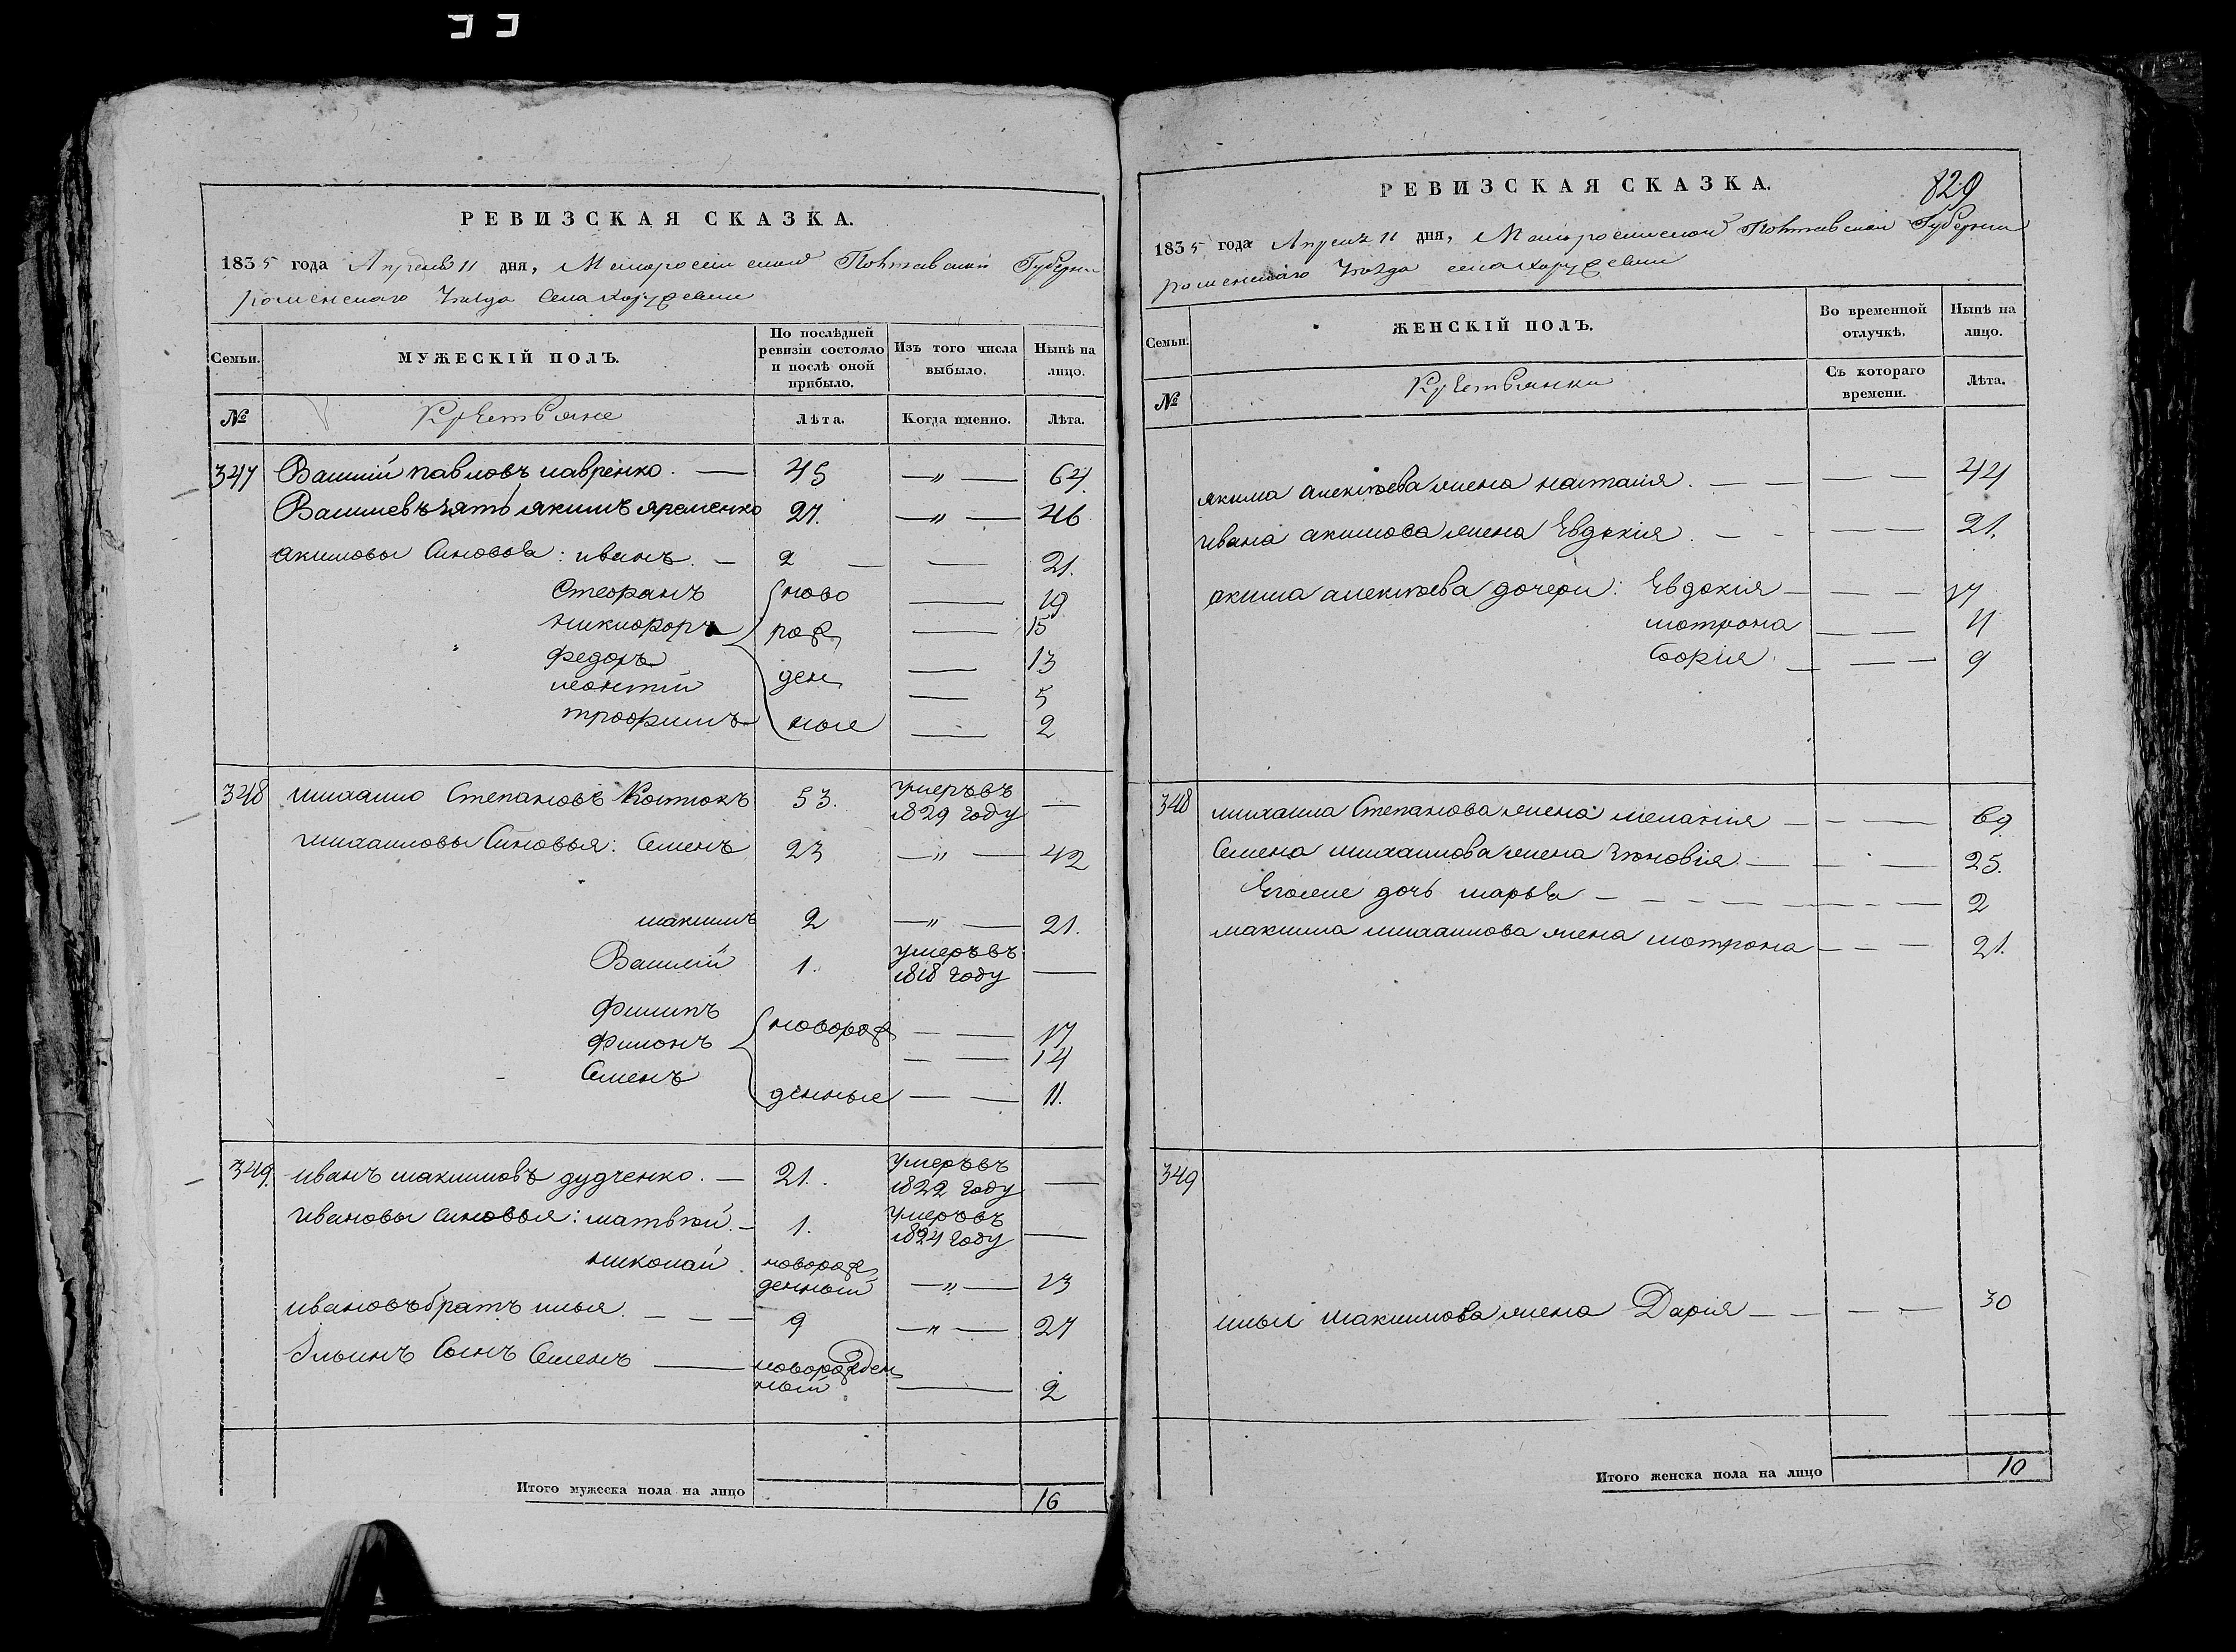 РЕВИЗСКАЯ СКАЗКА.
1835 года Апреля 11 дня, Малоросійской Полтавской Губерніи
роменскаго уѣзда села хоружевки
Семьи.
МУЖЕСКІЙ ПОЛЪ.
По послѣдней ревизіи состояло и послѣ оной прибыло.
Изъ того числа выбыло.
Нынѣ на лицо.
№
Крестьяне
Лѣта.
Когда именно.
Лѣта.
347 Василій павловъ лавренко. — 45 —„— 64.
Василиевъ зять якимъ яременко 27. —„— 46
акимовы синовья: иванъ. — 2 — — 21.
Стефанъ ново — 19
никифоръ рож — 15
федоръ ден — 13
леонтій — 5
трофимъ ные — 2
348 михаило Степановъ Костюкъ 53. умеръ въ 1829 году —
михаиловы Синовья: Семенъ 23 —„— 42
максимъ 2 —„— 21.
Василій 1. умеръ въ 1818 году —
филипъ новорож — — 17
филонъ — — 14
Семенъ денные — — 11.
349. иванъ максимовъ дудченко. — 21. умеръ въ 1822 году —
ивановы синовья: матвѣй. — 1. умеръ въ 1824 году —
николай новорож денный —„— 13
ивановъ братъ илья — — — 9 —„— 27
Ильинъ Сынъ Семенъ — новорожден ный — 2
Итого мужеска пола на лицо 16
829
РЕВИЗСКАЯ СКАЗКА.
1835 года Апреля 11 дня, Малоросийской Полтавской Губернии
роменскаго уѣзда села хоружевки
Семьи.
ЖЕНСКІЙ ПОЛЪ.
Во временной отлучкѣ.
Нынѣ на лицо.
№
Крестьянки
Съ котораго времени.
Лѣта.
якима алексѣева жена настасія. — — — — 44
ивана акимова жена Евдокія. — - — — 21.
акима алексѣева дочери: Евдокія — — — 17
мотрона — — 11
Софія. — — — 9
348 михаила Степанова жена меланія — — — 69
Семена михаилова жена Зѣновія. — — — 25.
Егоже дочь марья — — — — — — 2
максима михаилова жена мотрона — — — 21.
349
ильи максимова жена Дарія — — — — 30
Итого женска пола на лицо 10